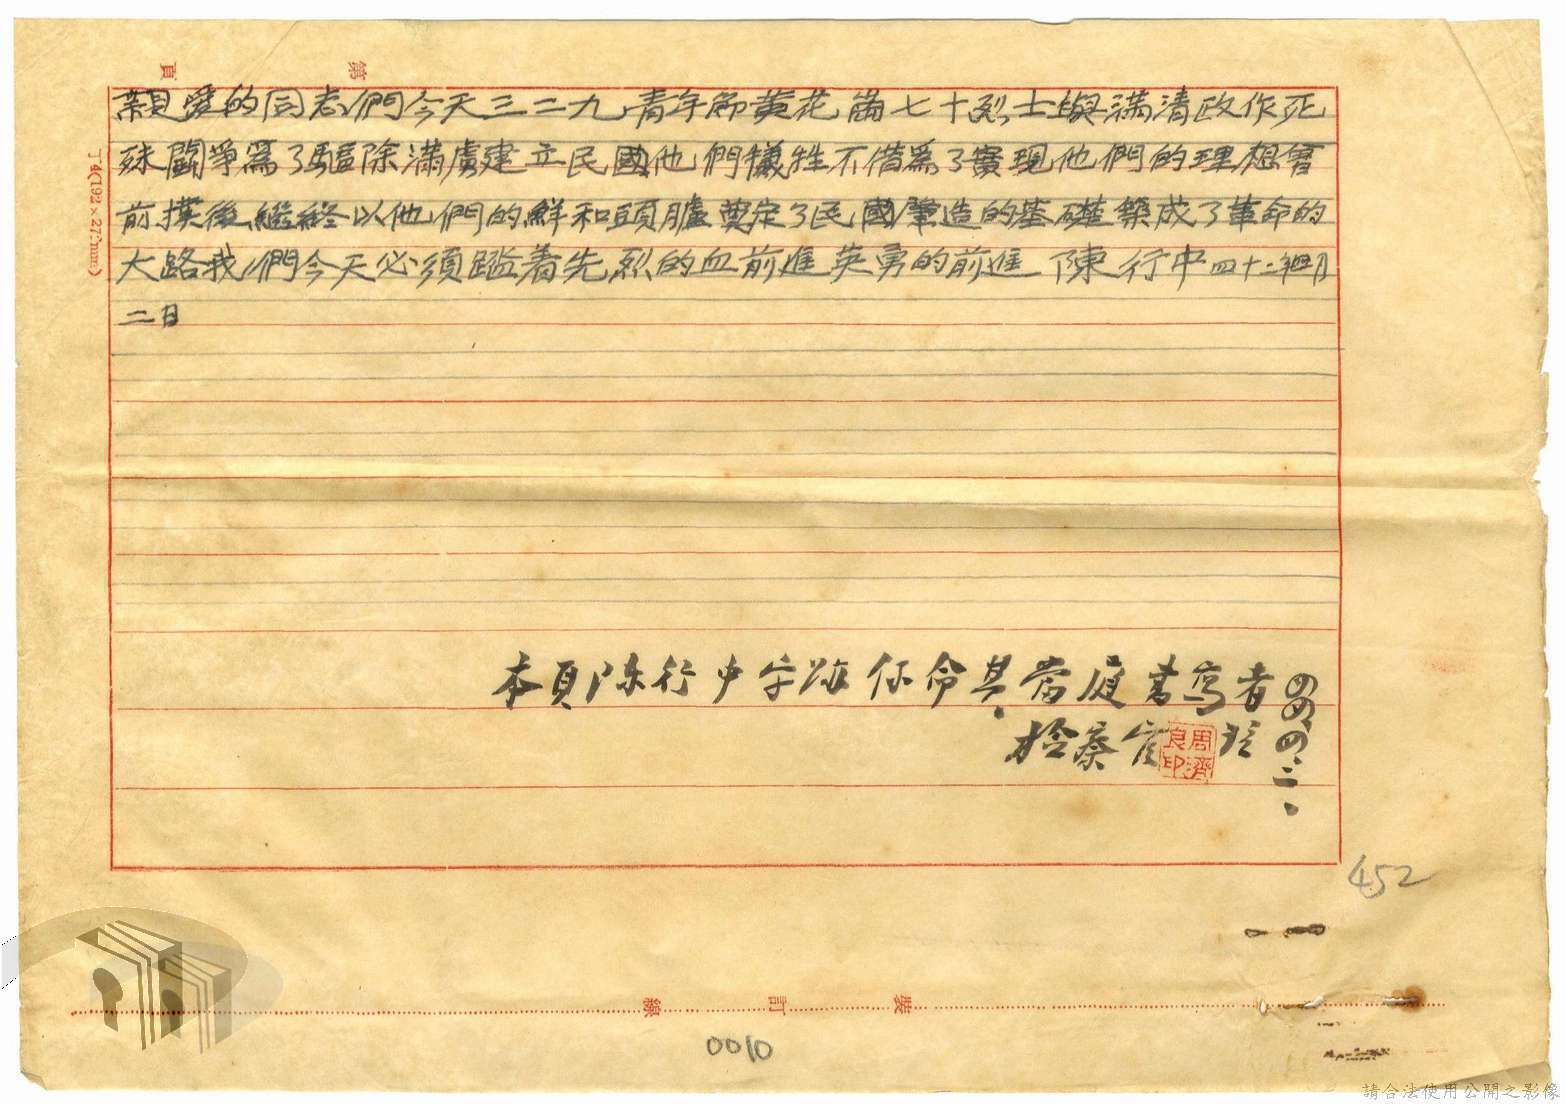 第 頁
親愛的同志們今天三二九青年節黃花崗七十烈士與滿清政作死
殊鬪爭為了驅除滿虜建立民國他們犧牲不惜為了實現他們的理想
前撲後繼終以他們的鮮和頭臚奠定了民國肇造的基礎築成了革命的
大路我們今天必須踏着先烈的血前進英勇的前進 陳行中 四十二年四月
二日
T4(192×272mm)
本頁陳行中字跡係命其當庭書寫者
檢察官
周濟良印
四四、四、二、
452
裝 訂 線
0010
請合法使用公開之影像